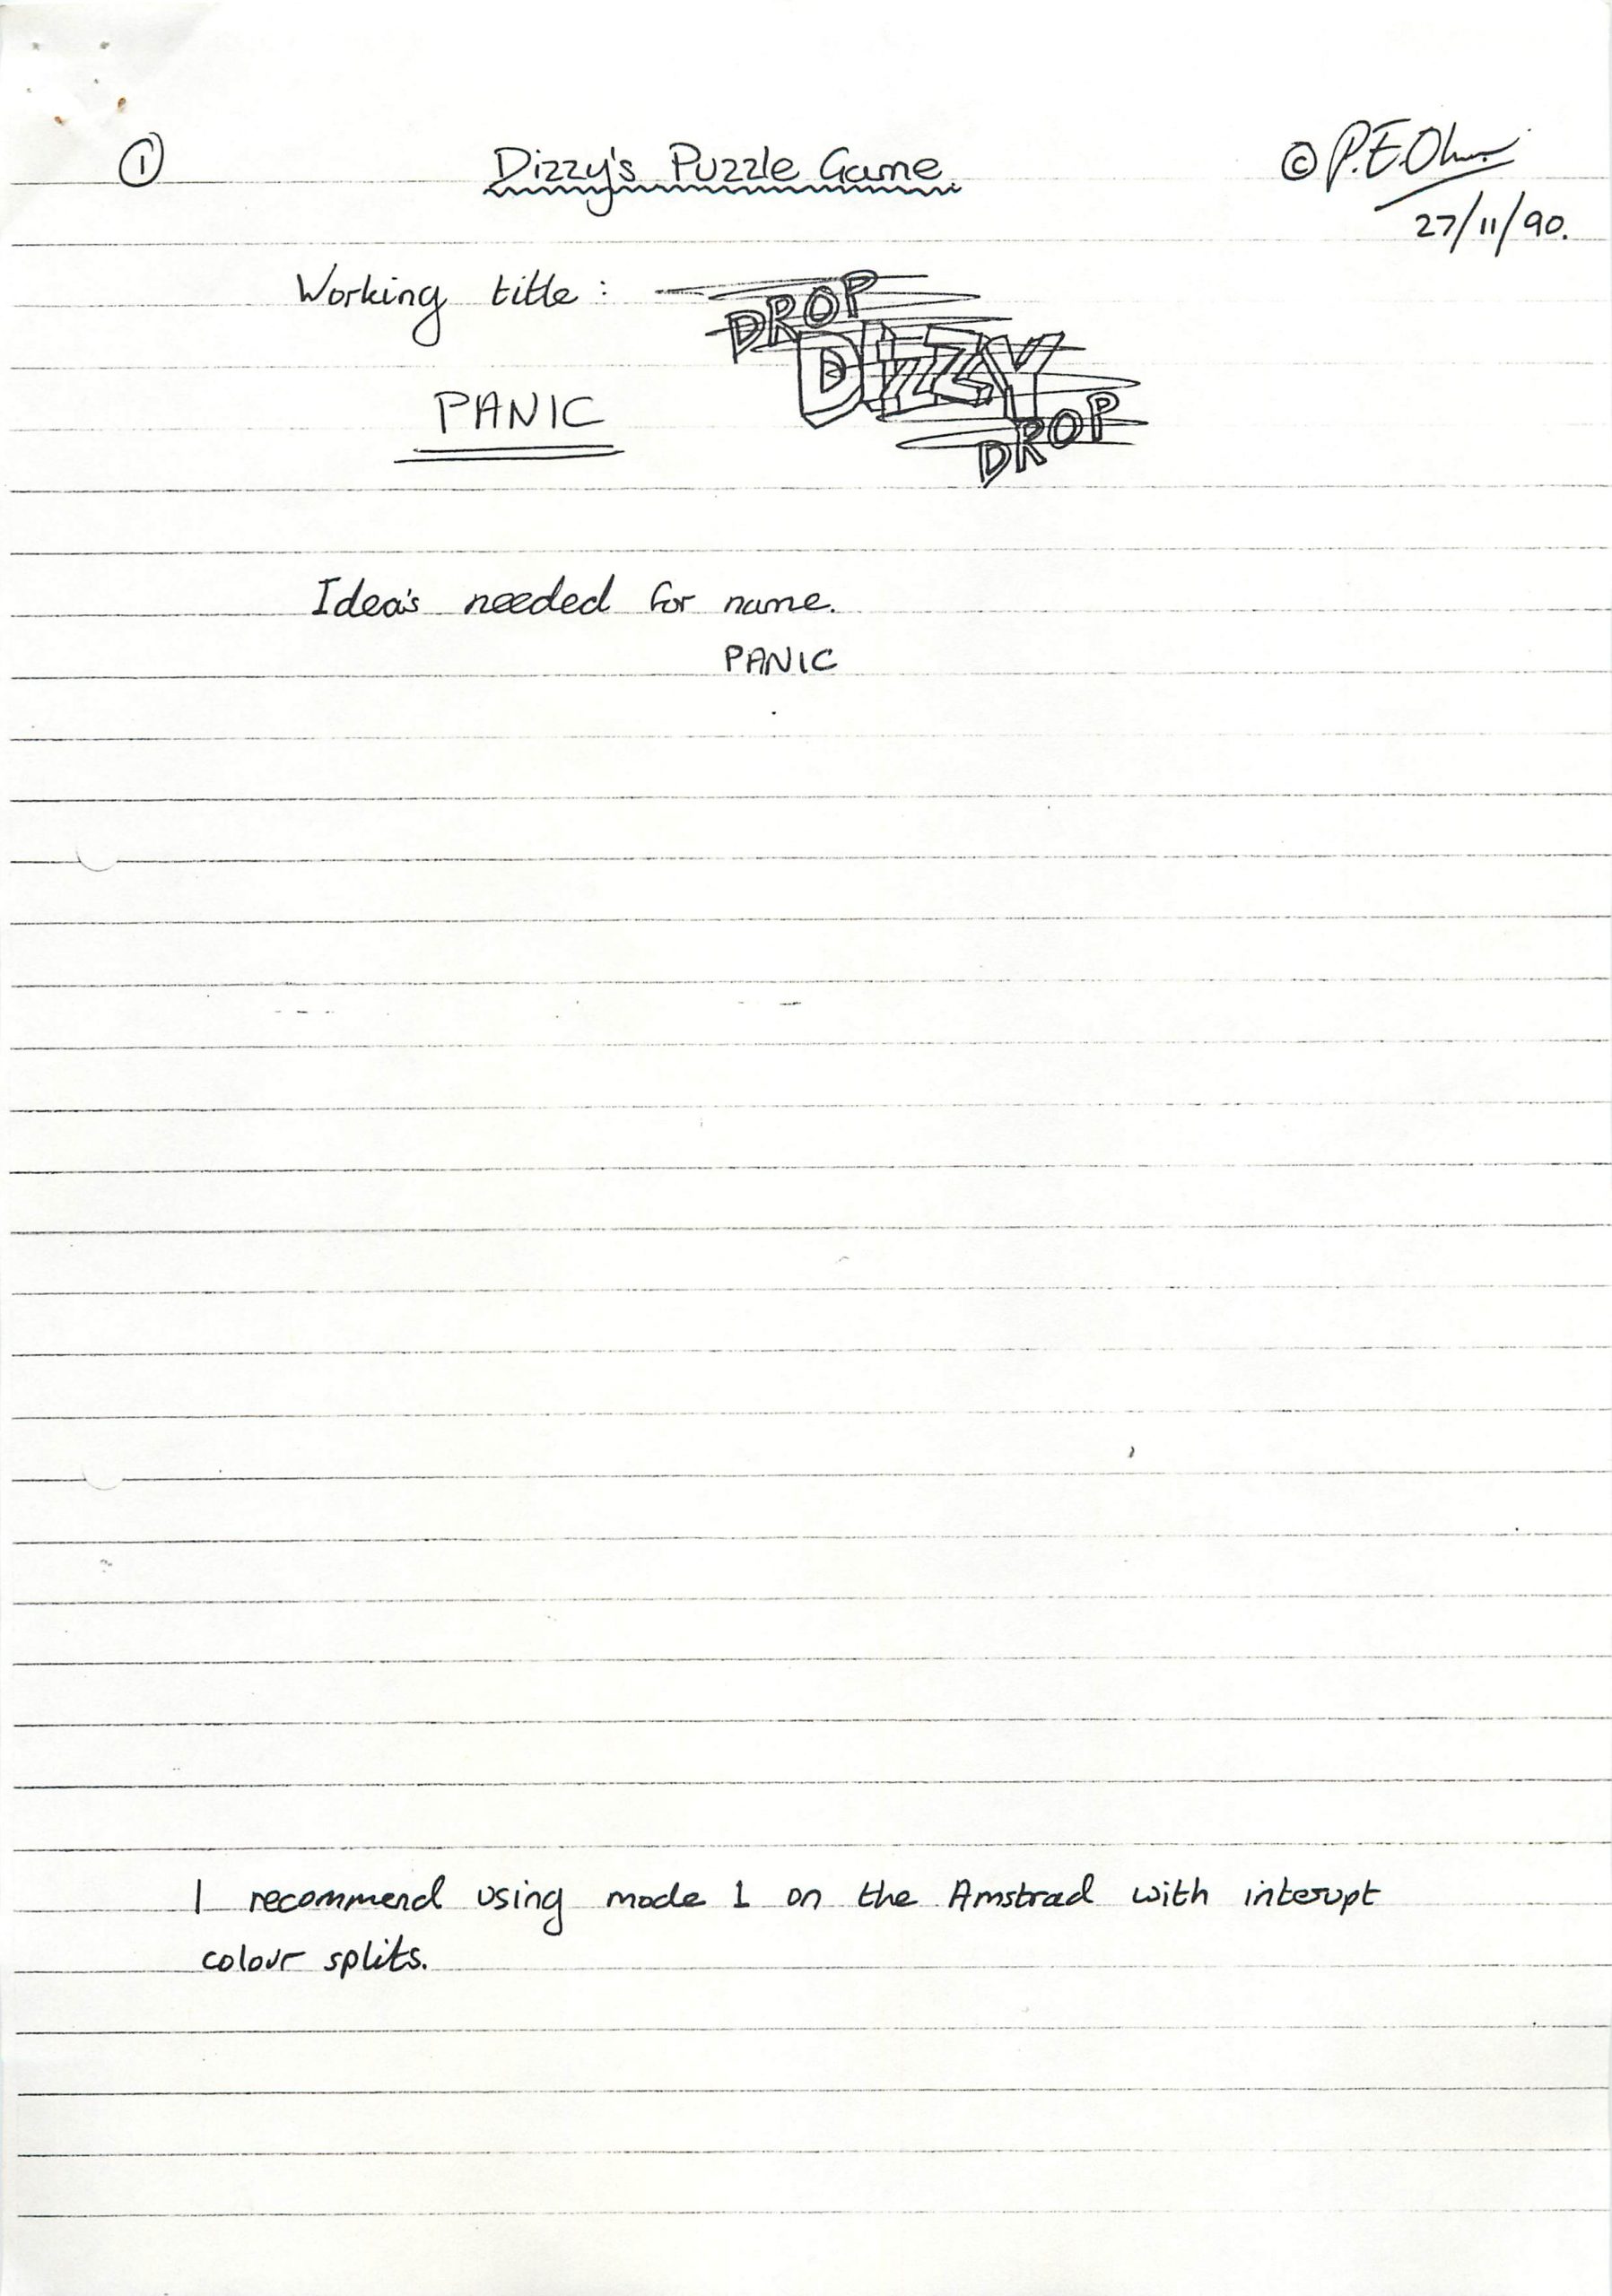 ① Dizzy's Puzzle Game. © P.E.Oliver
27/11/90.
Working title :
DROP
DIZZY
DROP
PANIC
Idea's needed for name.
PANIC
I recommend using mode 1 on the Amstrad with interupt
colour splits.